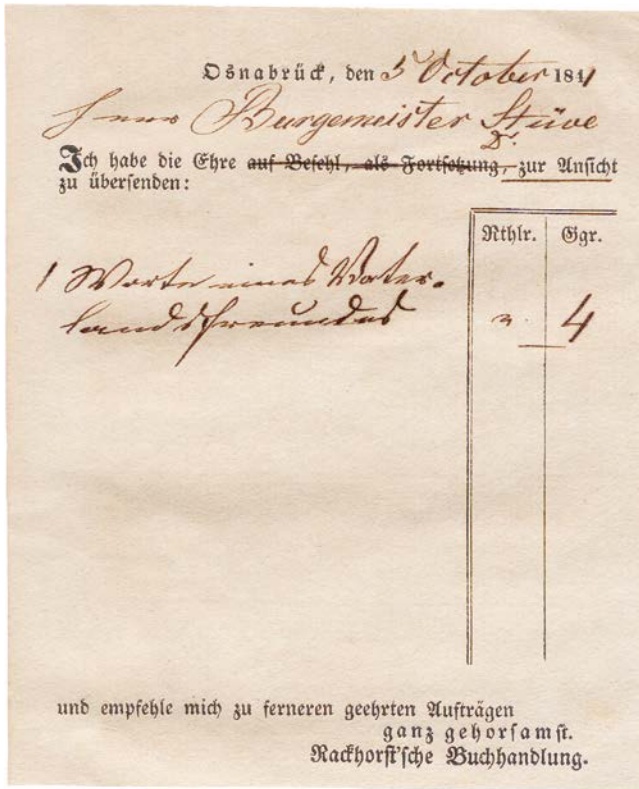 Osnabrück, den 5 October 1841
Herrn Burgemeister Stüve
Dr.
Ich habe die Ehre auf Befehl, als Fortsetzung, zur Ansicht
zu übersenden:
Rthlr. Ggr.
1 Worte eines Vater-
landsfreundes 4
und empfehle mich zu ferneren geehrten Aufträgen
ganz gehorsamst.
Rackhorst'sche Buchhandlung.